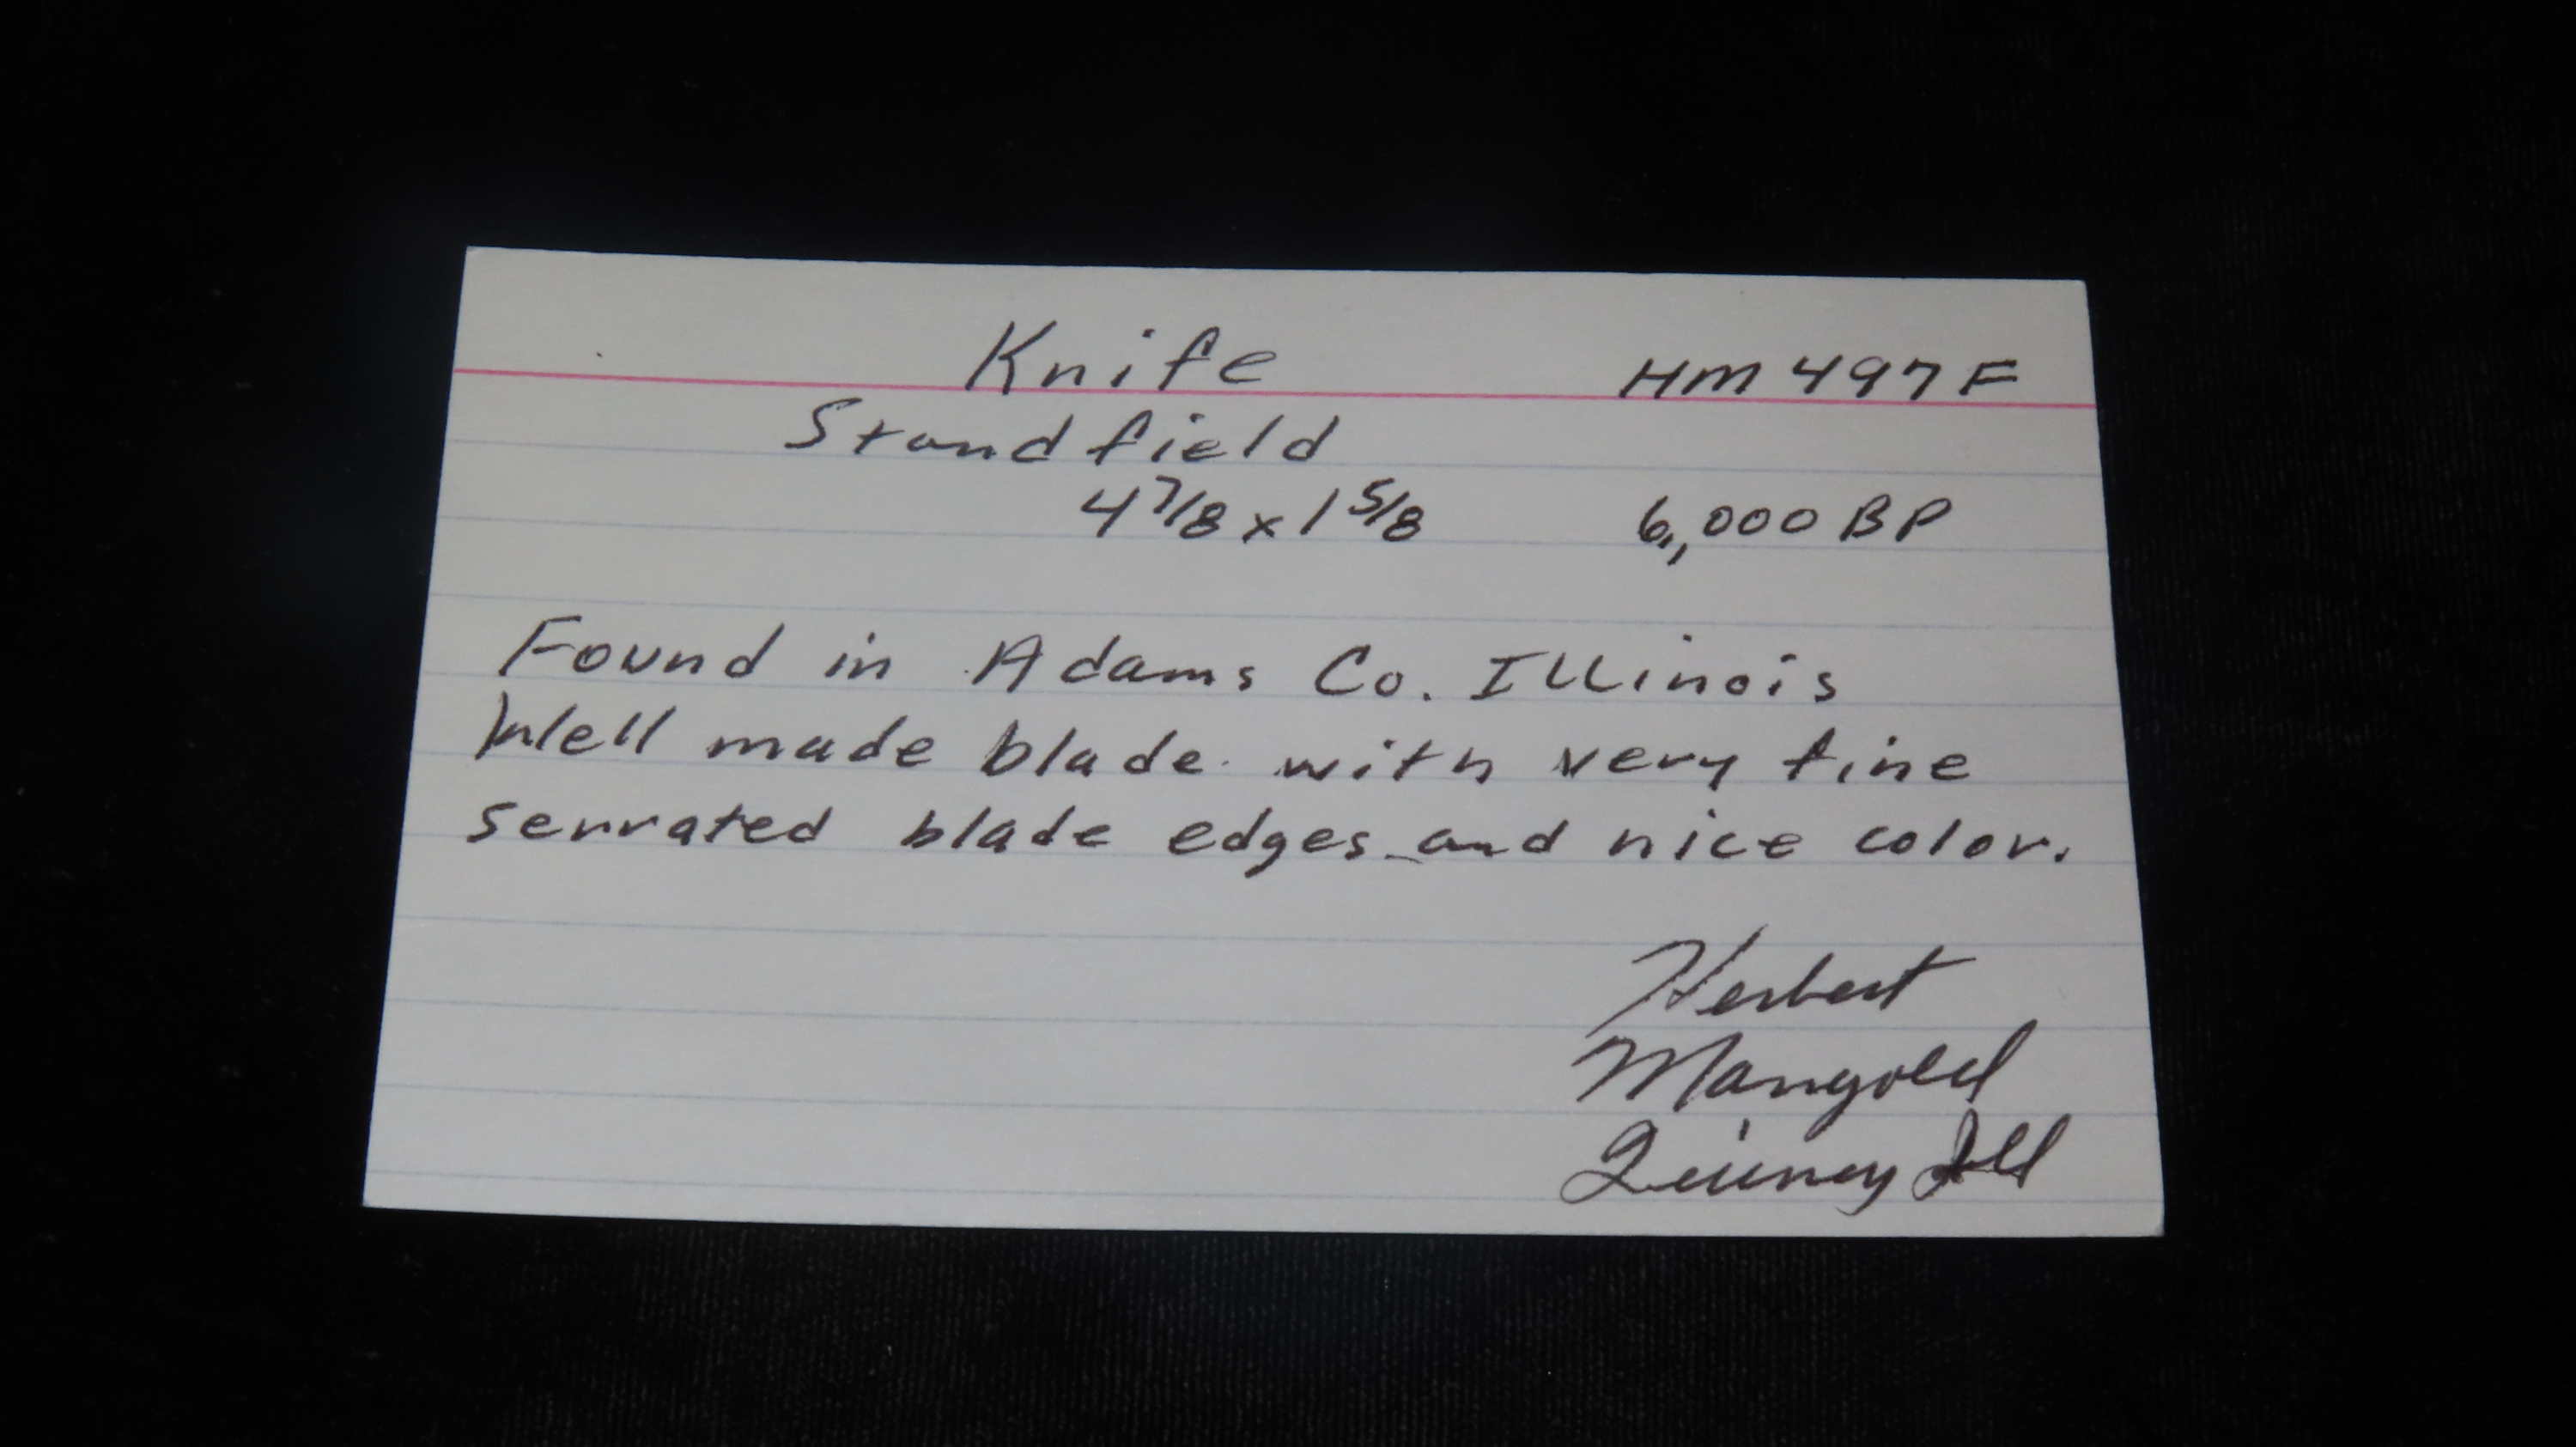 Knife HM 497 F
Standfield
4 7/8 x 1 5/8 6,000 BP
Found in Adams Co. Illinois
Well made blade with very fine
serrated blade edges and nice color.
Herbert
Mangold
Quincy Ill